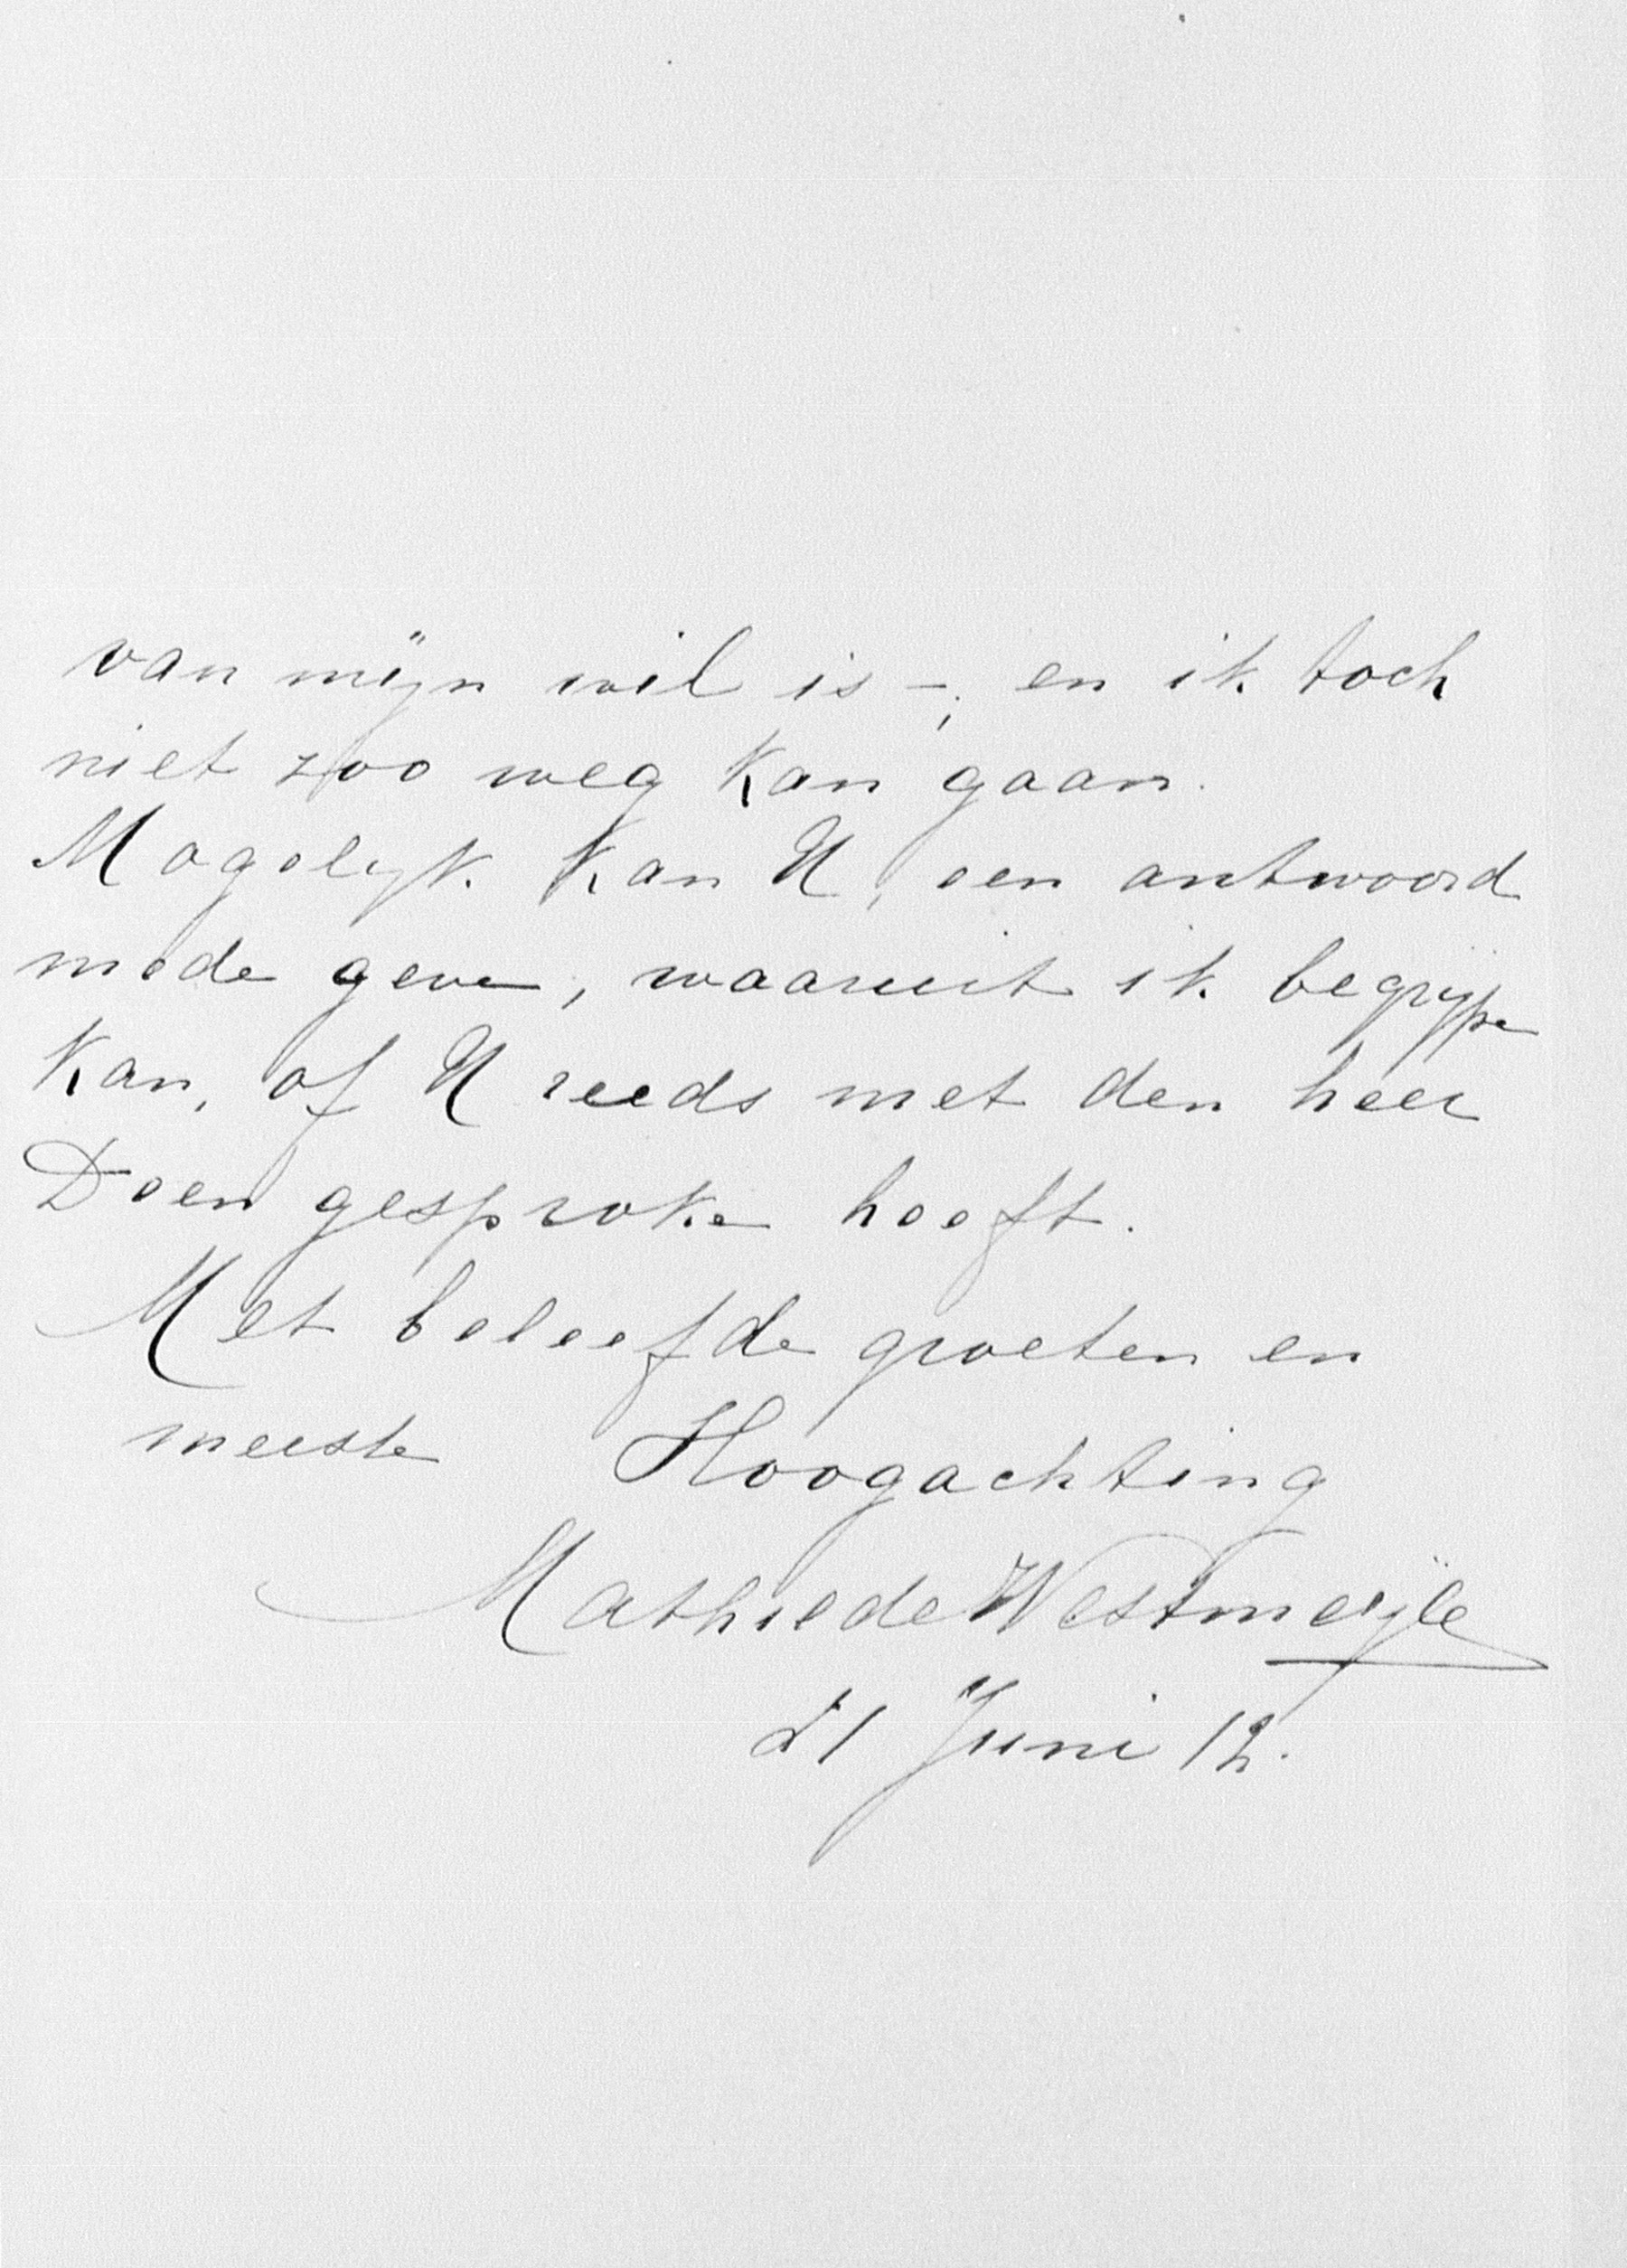 van mijn wil is -, en ik toch
niet zoo weg kan gaan.
Mogelijk kan U, een antwoord
mede geve, waaruit ik begrijpe
kan, of U reeds met den heer
Doen gesproke heeft.
Met beleefde groeten en
meeste Hoogachting
Mathilde Westmeijle
21 Juni 12.